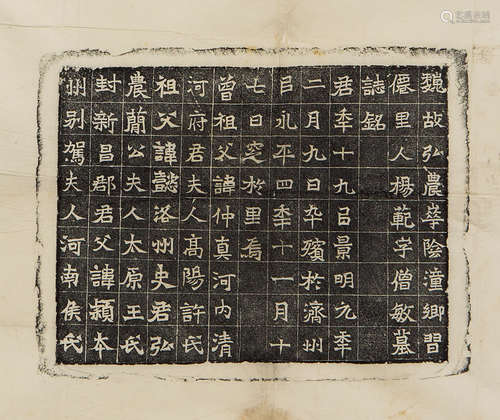 魏故弘農華陰潼鄉習
僊里人楊範字僧敏墓
誌銘
君年十九㠯景明元年
二月九日卒殯於濟州
㠯永平四年十一月十
七日窆於里焉
曾祖父諱仲真河內清
河府君夫人高陽許氏
祖父諱懿洛州史君弘
農蕑公夫人太原王氏
封新昌郡君父諱穎本
州別駕夫人河南侯氏